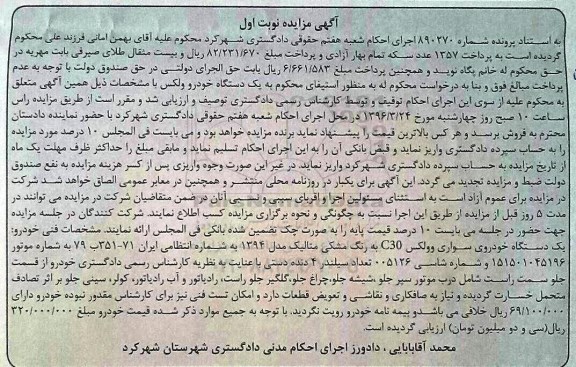 آگهی مزایده نوبت اول
به استناد پرونده شماره ۸۹۰۲۷۰ اجرای احکام شعبه هفتم حقوقی دادگستری شهرکرد محکوم علیه آقای بهمن امانی فرزند علی محکوم
گردیده است به پرداخت ۱۳۵۷ عدد سکه تمام بهار آزادی و پرداخت مبلغ ۸۲/۲۳۱/۶۷۰ ریال و بیست مثقال طلای صیرفی بابت مهریه در
حق محکوم له خانم پگاه نوید و همچنین پرداخت مبلغ ۶/۶۶۱/۵۸۳ ریال بابت حق الجرای دولتی در حق صندوق دولت با توجه به عدم
پرداخت مبالغ فوق و بنا به درخواست محکوم له به منظور استیفای محکوم به یک دستگاه خودرو ولکس با مشخصات ذیل همین آگهی متعلق
به محکوم علیه از سوی این اجرای احکام توقیف و توسط کارشناس رسمی دادگستری توصیف و ارزیابی شد و مقرر است از طریق مزایده راس
ساعت ۱۰ صبح روز چهارشنبه مورخ ۱۳۹۶/۳/۲۴ در محل اجرای احکام شعبه هفتم حقوقی دادگستری شهرکرد با حضور نماینده دادستان
محترم به فروش برسد و هر کس بالاترین قیمت را پیشنهاد نماید برنده مزایده خواهد بود و می بایست فی المجلس ۱۰ درصد مورد مزایده
را به حساب سپرده دادگستری واریز نماید و فیش بانکی آن را به این اجرای احکام تسلیم نماید و مابقی مبلغ را حداکثر ظرف مهلت یک ماه
از تاریخ مزایده به حساب سپرده دادگستری شهرکرد واریز نماید. در غیر این صورت وجوه واریزی پس از کسر هزینه مزایده به نفع صندوق
دولت ضبط و مزایده تجدید می گردد. این آگهی برای یکبار در روزنامه محلی منتشر و همچنین در معابر عمومی الصاق خواهد شد شرکت
در مزایده برای عموم آزاد است به استثنای مسئولین اجرا و اقربای سببی و نسبی آنان در ضمن متقاضیان شرکت در مزایده می توانند در
مدت ۵ روز قبل از مزایده از طریق این اجرا نسبت به چگونگی و نحوه برگزاری مزایده کسب اطلاع نمایند. شرکت کنندگان در جلسه مزایده
جهت حضور در جلسه می بایست ۱۰ درصد قیمت پایه را به صورت چک تضمین شده بانکی فی المجلس ارائه نمایند. مشخصات فنی خودرو:
یک دستگاه خودروی سواری وولکس C30 به رنگ مشکی متالیک مدل ۱۳۹۴ به شماره انتظامی ایران ۷۱-۳۵۱ب ۷۹ به شماره موتور
۱۵۱۵۰۱۰۴۵۱۹۶ و شماره شاسی ۰۰۵۱۲۶ تعداد سیلندر ۴ دنده دستی با عنایت به نظریه کارشناس رسمی دادگستری خودرو از قسمت
جلو سمت راست شامل درب موتور سپر جلو ،شیشه جلو،چراغ جلو،گلگیر جلو راست، رادیاتور و آب رادیاتور، کولر، سینی جلو بر اثر تصادف
متحمل خسارت گردیده و نیاز به صافکاری و نقاشی و تعویض قطعات دارد و امکان تست فنی نیز برای کارشناس مقدور نبوده خودرو دارای
۶۹/۱۰۰/۰۰۰ ریال خلافی می باشدو بیمه نامه خودرو رویت نگردید. با توجه به جمیع موارد ذکر شده قیمت خودرو مبلغ ۳۲۰/۰۰۰/۰۰۰
ریال(سی و دو میلیون تومان) ارزیابی گردیده است.
محمد آقابابایی ، دادورز اجرای احکام مدنی دادگستری شهرستان شهرکرد